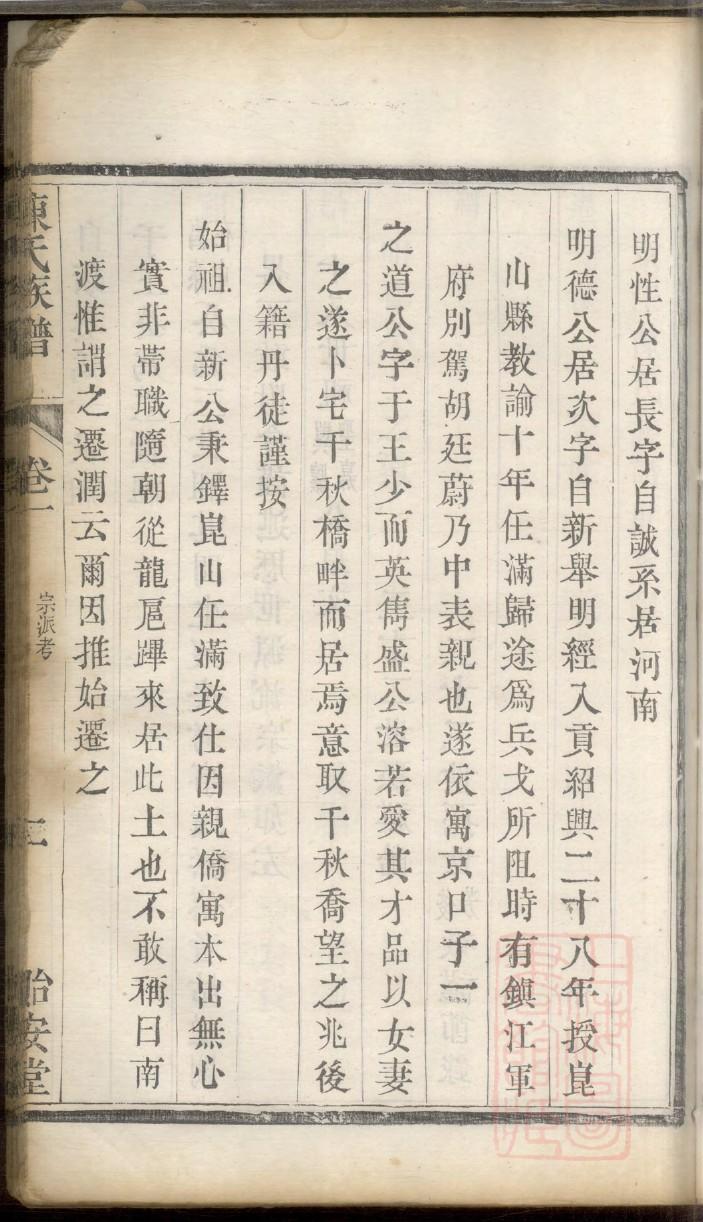 明性公居長字自誠系居河南
明德公居次字自新舉明經入貢紹興二十八年授崑
山縣教諭十年任滿歸途爲兵戈所阻時有鎮江軍
府別駕胡廷蔚乃中表親也遂依寓京口子一
之道公字于王少而英雋盛公溶若愛其才品以女妻
之遂卜宅千秋橋畔而居焉意取千秋喬望之兆後
入籍丹徒謹按
始祖自新公秉鐸崑山任滿致仕因親僑寓本出無心
實非帶職隨朝從龍扈蹕來居此土也不敢稱曰南
渡惟謂之遷潤云爾因推始遷之
陳氏族譜 卷一 宗派考 二 詒安堂